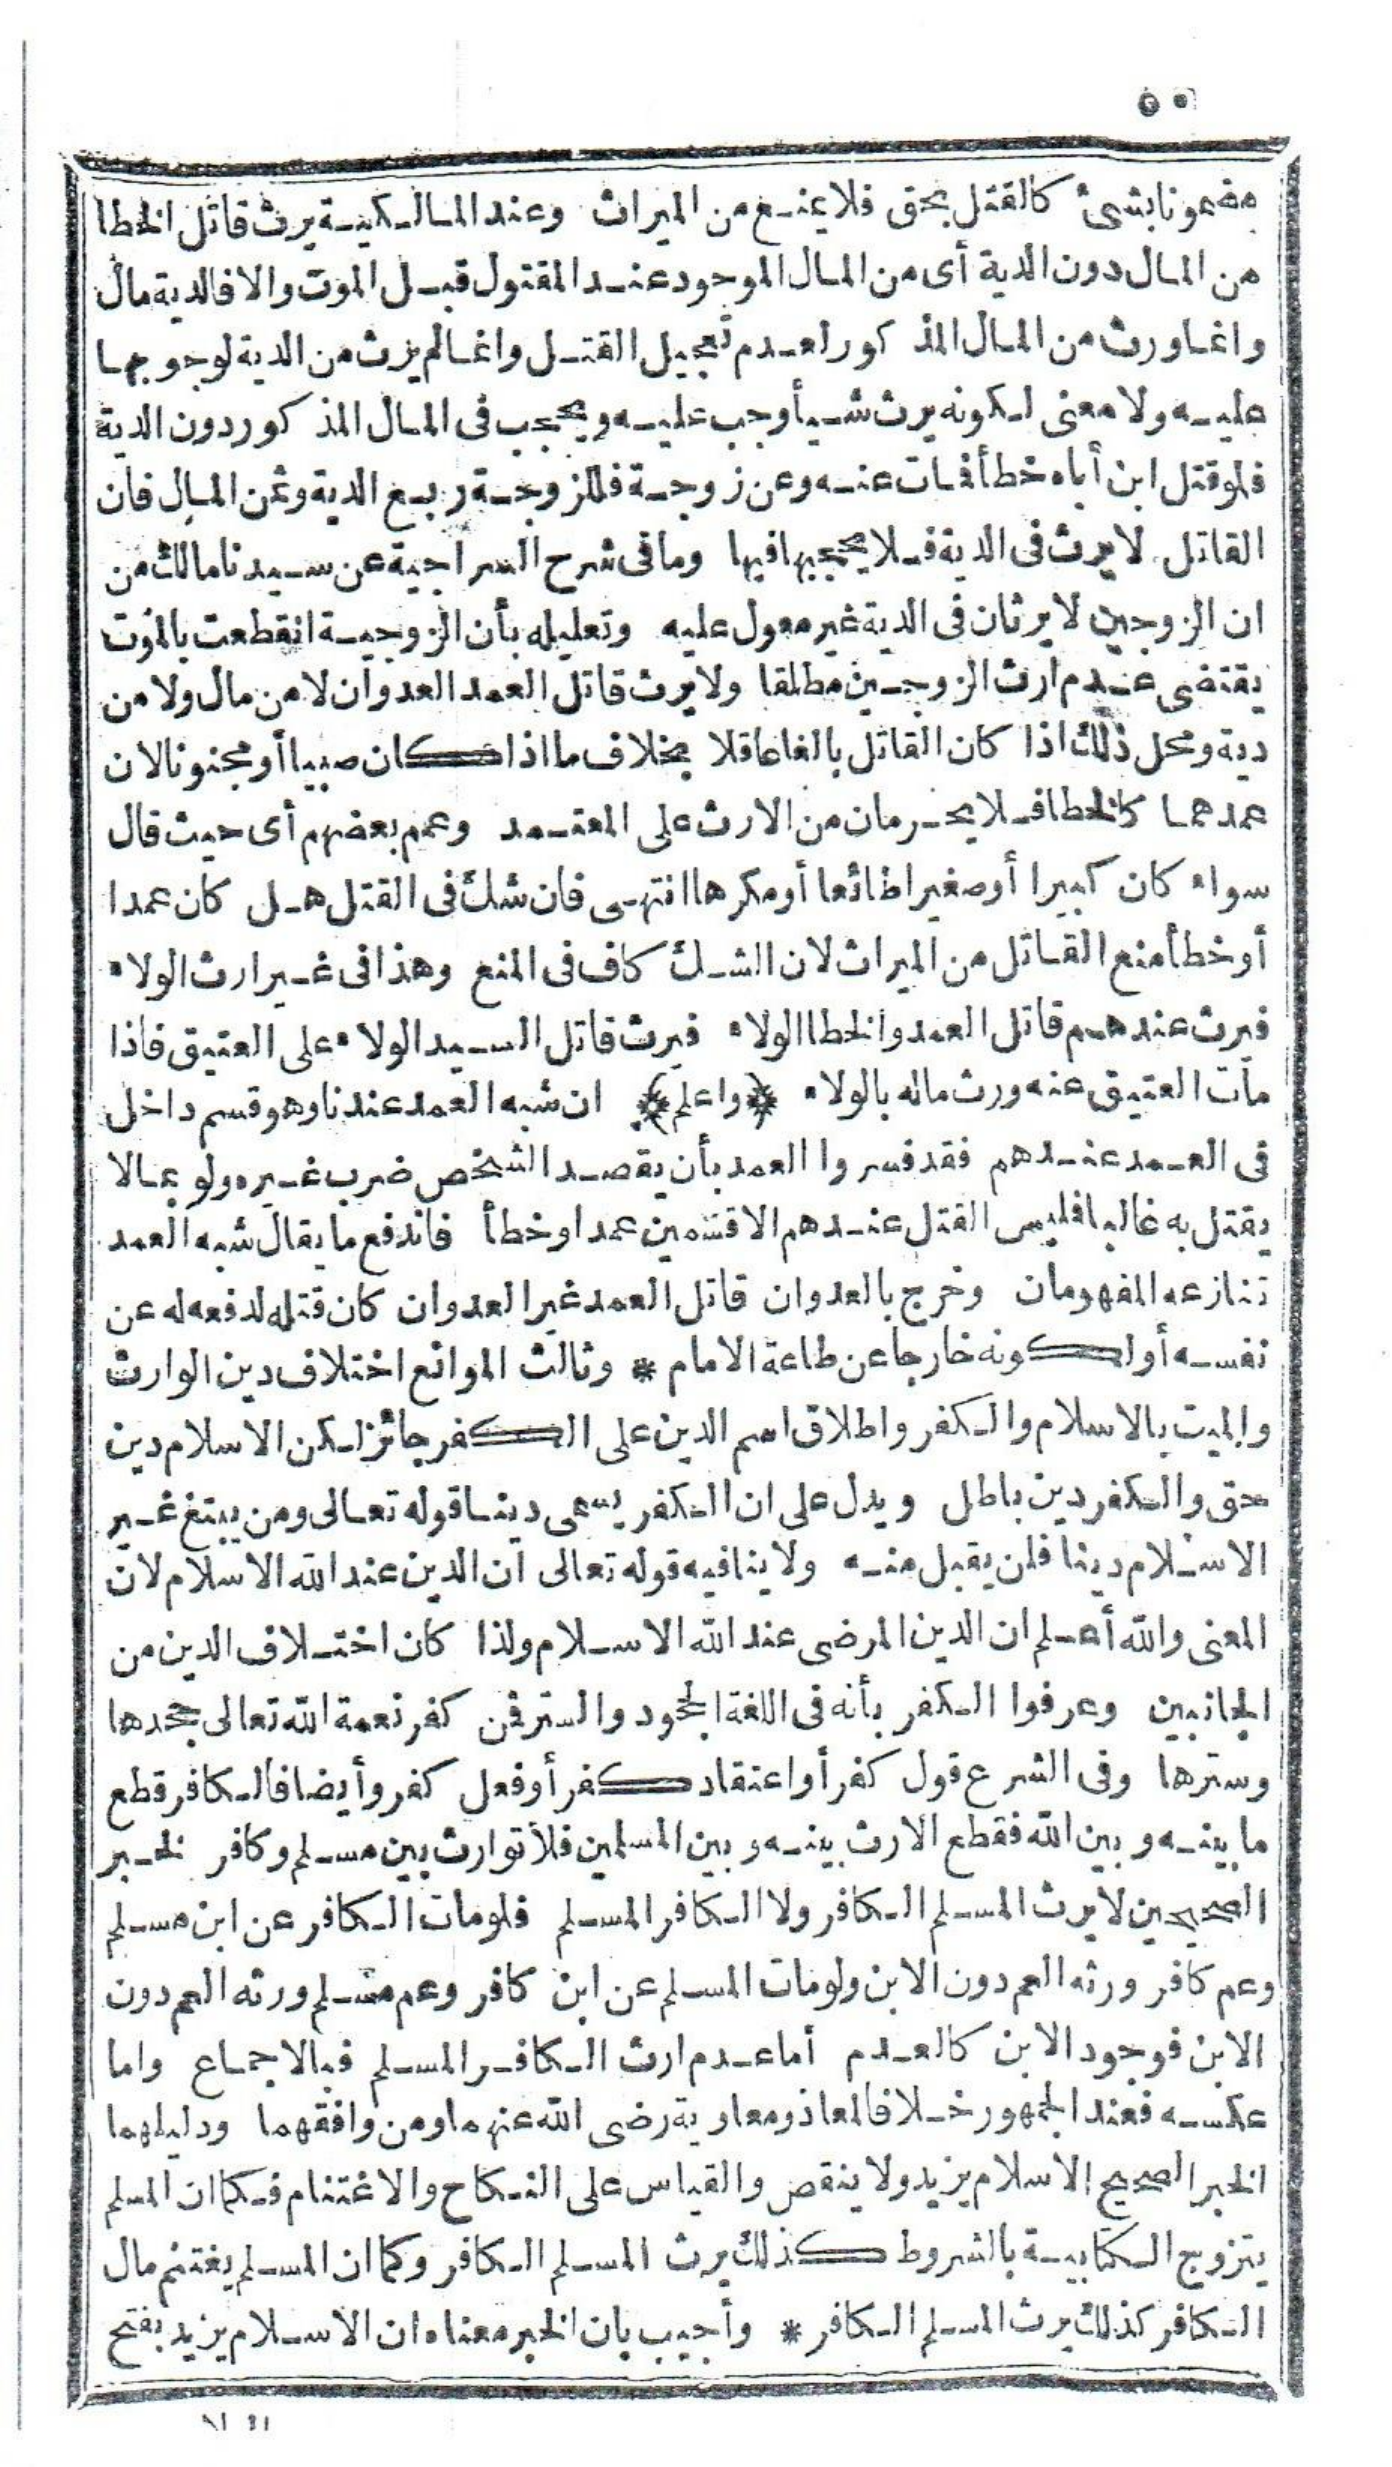 ٥٠
مضمونا بشئ كالقتل بحق فلا يمنع من الميراث وعند المالكية يرث قاتل الخطا
من المال دون الدية أى من المال الموجود عند المقتول قبل الموت والا فالدية مال
وانما ورث من المال المذكور لعدم تعجيل القتل وانما لم يرث من الدية لوجوبها
عليه ولا معنى لكونه يرث شيأ وجب عليه ويحجب فى المال المذكور دون الدية
فلو قتل ابن أباه خطأ فمات عنه وعن زوجة فللزوجة ربع الدية وثمن المال فان
القاتل لا يرث فى الدية فلا يحجبها فيها وما فى شرح السراجية عن سيدنا مالك من
ان الزوجين لا يرثان فى الدية غير معول عليه وتعليله بأن الزوجية انقطعت بالموت
يقتضى عدم ارث الزوجين مطلقا ولا يرث قاتل العمد العدوان لا من مال ولا من
دية ومحل ذلك اذا كان القاتل بالغا عاقلا بخلاف ما اذا كان صبيا أو مجنونا لان
عمدهما كالخطا فلا يحرمان من الارث على المعتمد وعمم بعضهم أى حيث قال
سواء كان كبيرا أو صغيرا طائعا أو مكرها انتهى فان شك فى القتل هل كان عمدا
أو خطأ منع القاتل من الميراث لان الشك كاف فى المنع وهذا فى غير ارث الولاء
فيرث عندهم قاتل العمد والخطا الولاء فيرث قاتل السيد الولاء على العتيق فاذا
مات العتيق عنه ورث ماله بالولاء ﴿واعلم﴾ ان شبه العمد عندنا وهو قسم داخل
فى العمد عندهم فقد فسروا العمد بأن يقصد الشخص ضرب غيره ولو بما لا
يقتل به غالبا فليس القتل عندهم الا قسمين عمدا وخطأ فاندفع ما يقال شبه العمد
تنازعه المفهومان وخرج بالعدوان قاتل العمد غير العدوان كان قتله لدفعه له عن
نفسه أو لكونه خارجا عن طاعة الامام * وثالث الموانع اختلاف دين الوارث
والميت بالاسلام والكفر واطلاق اسم الدين على الكفر جائز لكن الاسلام دين
حق والكفر دين باطل ويدل على ان الكفر يسمى دينا قوله تعالى ومن يبتغ غير
الاسلام دينا فلن يقبل منه ولا ينافيه قوله تعالى ان الدين عند الله الاسلام لان
المعنى والله أعلم ان الدين المرضى عند الله الاسلام ولذا كان اختلاف الدين من
الجانبين وعرفوا الكفر بأنه فى اللغة الجحود والستر فمن كفر نعمة الله تعالى جحدها
وسترها وفى الشرع قول كفر أو اعتقاد كفر أو فعل كفر وأيضا فالكافر قطع
ما بينه وبين الله فقطع الارث بينه وبين المسلمين فلا توارث بين مسلم وكافر لخبر
الصحيحين لا يرث المسلم الكافر ولا الكافر المسلم فلو مات الكافر عن ابن مسلم
وعم كافر ورثه العم دون الابن ولو مات المسلم عن ابن كافر وعم مسلم ورثه العم دون
الابن فوجود الابن كالعدم أما عدم ارث الكافر المسلم فبالاجماع واما
عكسه فعند الجمهور خلافا لمعاذ ومعاوية رضى الله عنهما ومن وافقهما ودليلهما
الخبر الصحيح الاسلام يزيد ولا ينقص والقياس على النكاح والاغتنام فكما ان المسلم
يتزوج الكتابية بالشروط كذلك يرث المسلم الكافر وكما ان المسلم يغتنم مال
الكافر كذلك يرث المسلم الكافر * وأجيب بان الخبر معناه ان الاسلام يزيد بفتح